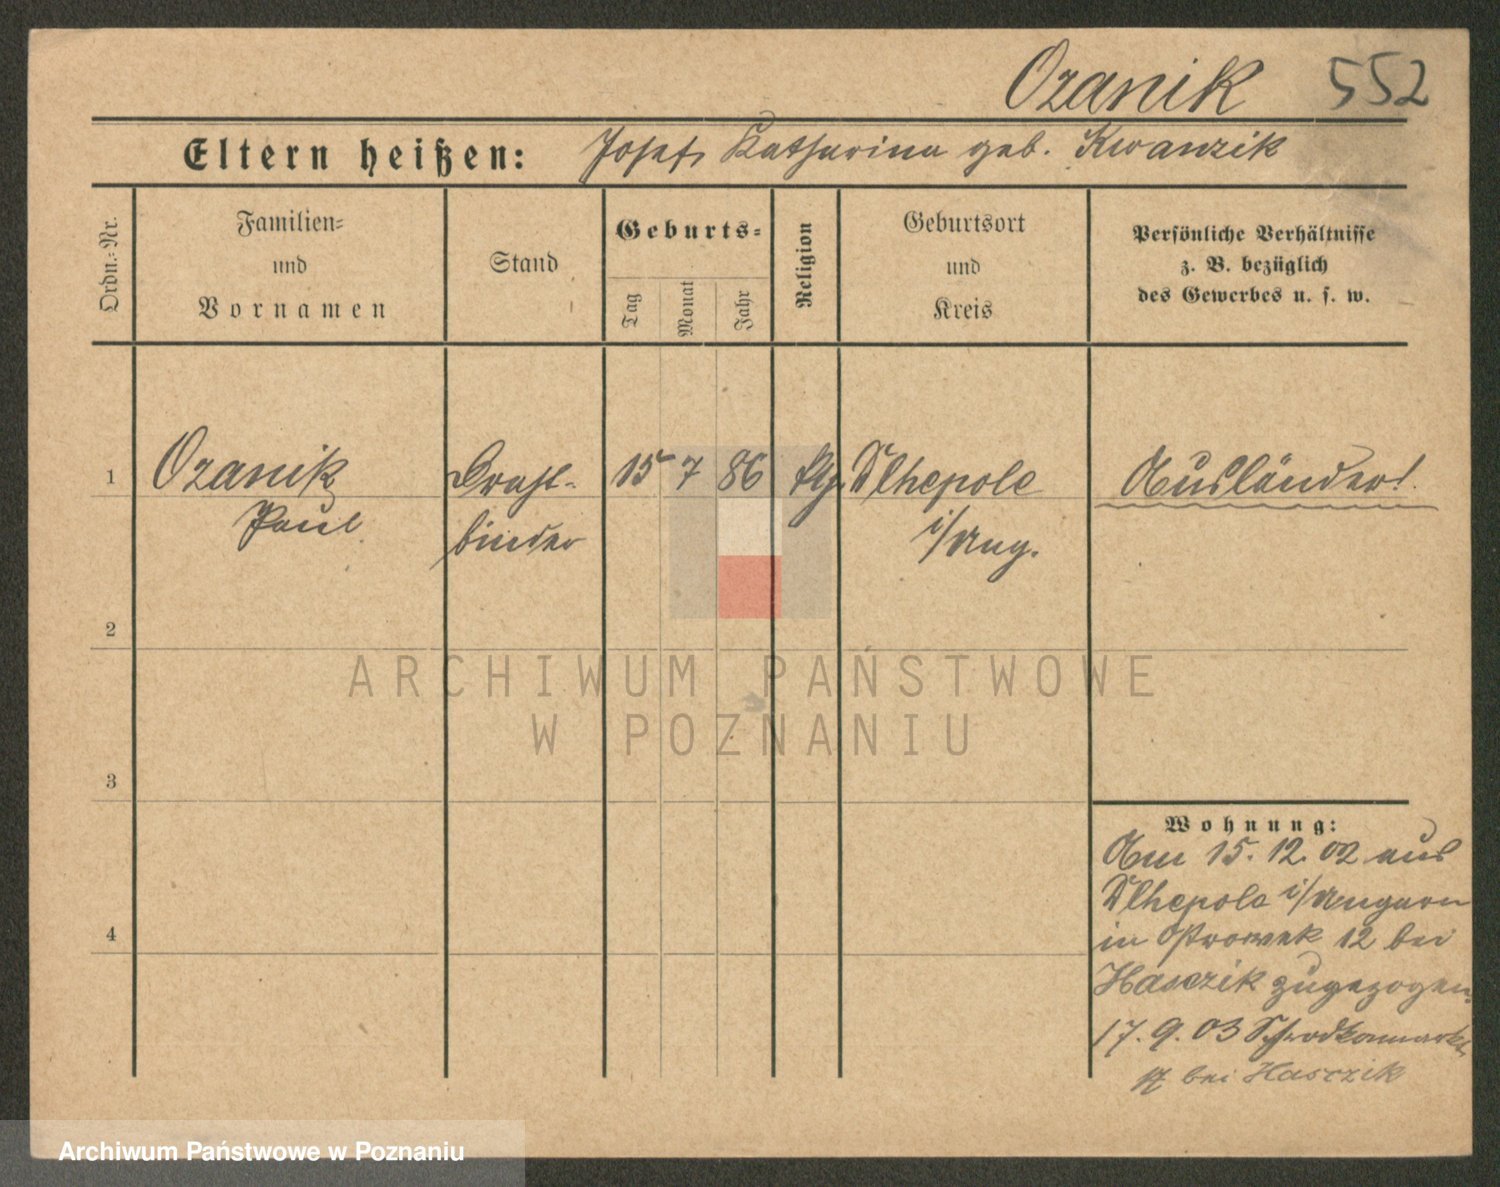 Ozanik 552
Eltern heißen: Josef, Katharina geb. Kwanzik
Ordn.-Nr.
Familien-
und
Vornamen
Stand
Geburts-
Tag
Monat
Jahr
Religion
Geburtsort
und
Kreis
Persönliche Verhältnisse
z. B. bezüglich
des Gewerbes u. s. w.
1 Ozanik Draht- 15 7 86 kth. Dlhepole Ausländer!
Paul binder i/Ung.
2
3
4
Wohnung:
Am 15.12.02 aus
Dlhepole i/Ungarn
in Ostrowek 12 bei
Hasczik zugezogen.
17.9.03 Schrodkamarkt
bei Hasczik
ARCHIWUM PAŃSTWOWE
W POZNANIU
Archiwum Państwowe w Poznaniu